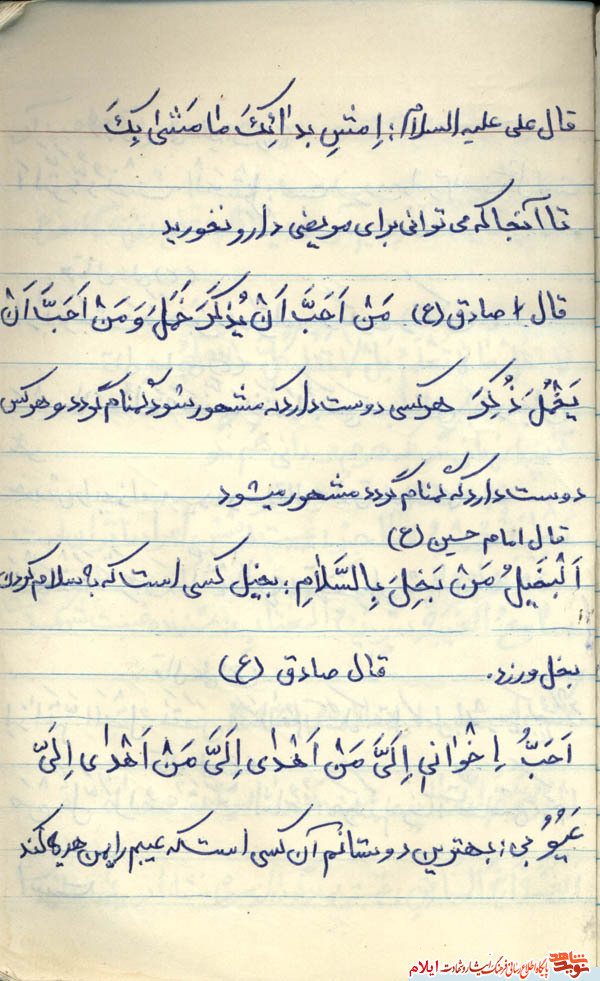 قال علی علیه السلام: اِمشِ بِدائِکَ ما مَشیٰ بِکَ
تا آنجا که می توانی برای مریضی دارو نخورید
قال صادق (ع) مَن اَحَبَّ اَن یُذکَرَ خَمَلَ وَ مَن اَحَبَّ اَن
یَخمُلَ ذُکِرَ هر کسی دوست دارد که مشهور شود گمنام گردد و هر کس
دوست دارد که گمنام گردد مشهور میشود
قال امام حسین (ع)
اَلبَخیلُ مَن بَخِلَ بِالسَّلامِ: بخیل کسی است که با سلام کردن
بخل ورزد. قال صادق (ع)
اَحَبُّ اِخوانی اِلَیَّ مَن اَهدای اِلَیَّ مَن اَهدای اِلَیَّ
عَیُوُبی: بهترین دوستانم آن کسی است که عیبم را بمن هدیه کند
نوید شاهد پایگاه اطلاع رسانی فرهنگ ایثار و شهادت ایلام